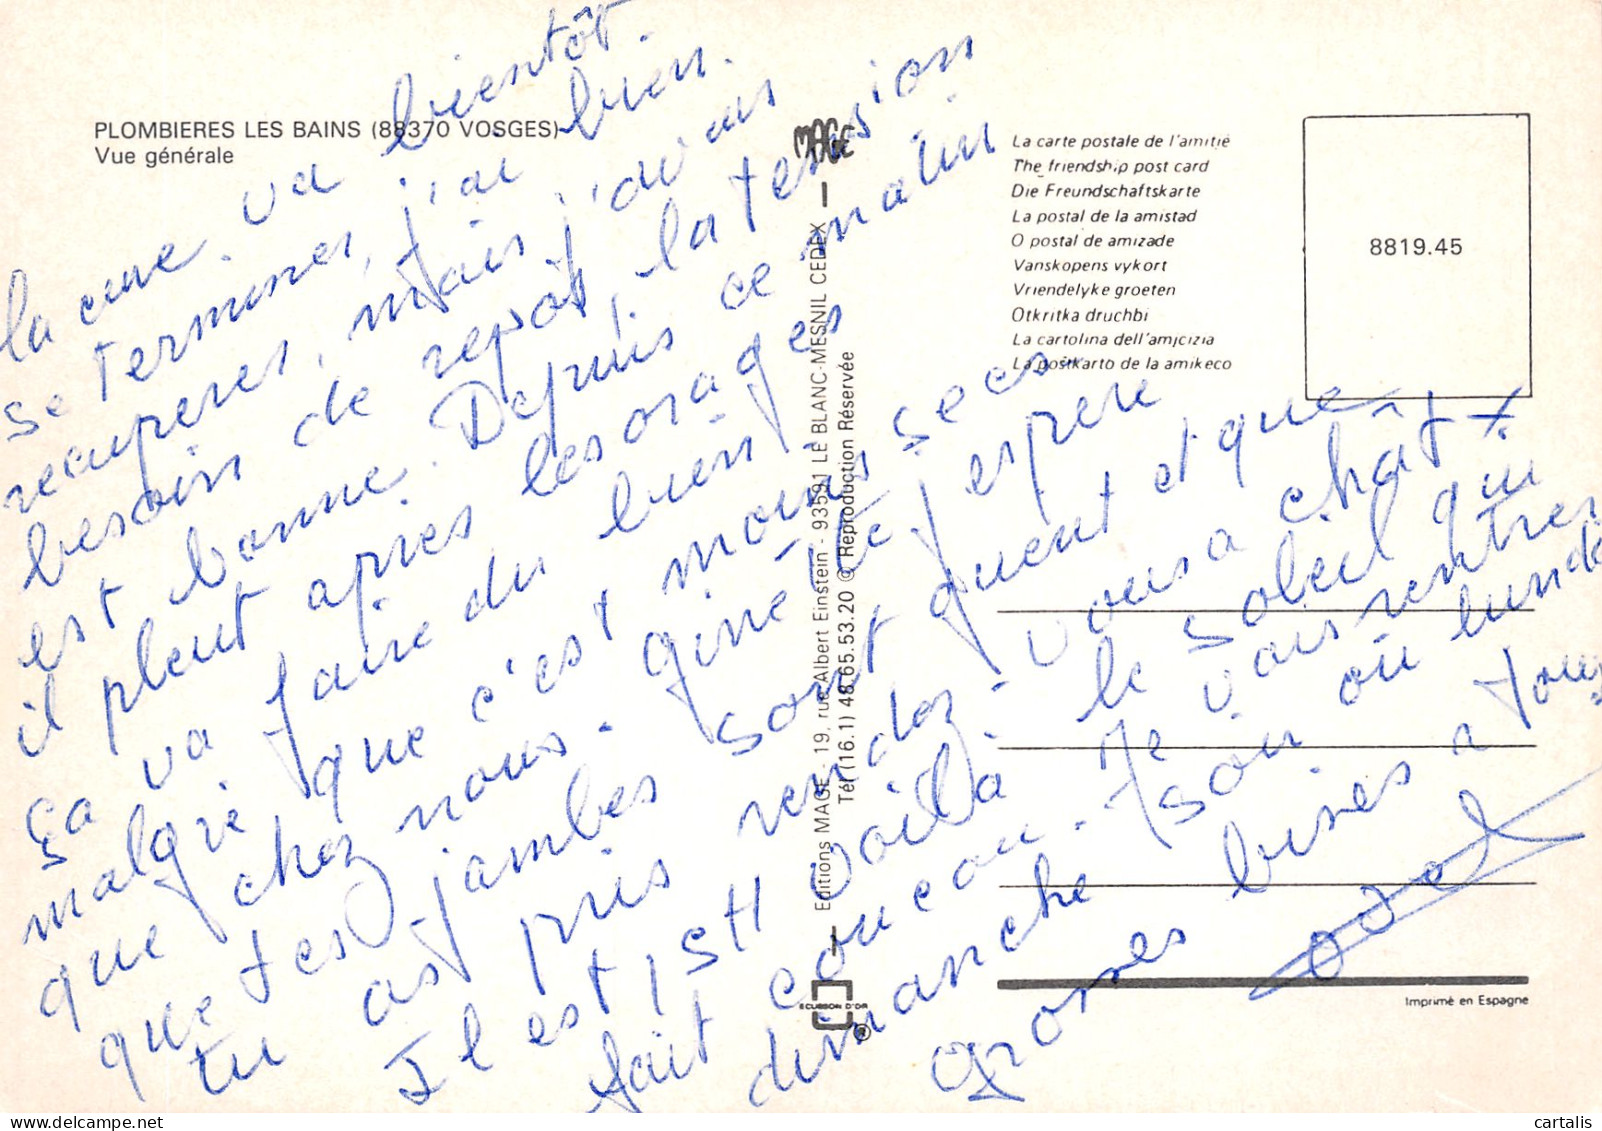 PLOMBIERES LES BAINS (88370 VOSGES)
Vue générale
la cure va bientôt
se terminer, j'ai bien
recuperer, mais j'avais
besoin de repos, la tension
est bonne. Depuis ce matin
il pleut après les orages
ça va faire du bien
malgré que c'est moins sec
que chez nous. gine
que tes jambes sont j'espère
tu as pris rendez-vous a chat
Il est 15H voilà le soleil qui
fait coucou. Je vais rentrer
dimanche soir ou lundi
grosses bises a tous
MAGE
Editions MAGE - 19, rue Albert Einstein - 93591 LE BLANC-MESNIL CEDEX
Tél (16.1) 48.65.53.20 © Reproduction Réservée
ECUSSON D'OR
®
La carte postale de l'amitié
The friendship post card
Die Freundschaftskarte
La postal de la amistad
O postal de amizade
Vanskopens vykort
Vriendelyke groeten
Otkritka druchbi
La cartolina dell'amicizia
La postkarto de la amikeco
8819.45
Imprimé en Espagne
cartalis